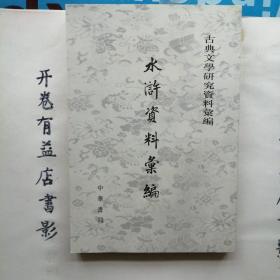 古典文學研究資料彙編
水滸資料彙編
中華書局
开卷有益店書影